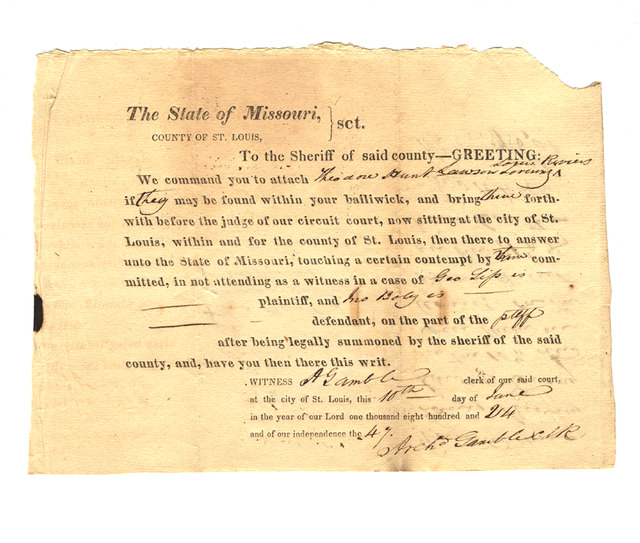 The State of Missouri, } sct.
COUNTY OF ST. LOUIS,
To the Sheriff of said county—GREETING:
Louis Reviers
We command you to attach Theodore Hunt Lawson
if they may be found within your bailiwick, and bring them forth-
with before the judge of our circuit court, now sitting at the city of St.
Louis, within and for the county of St. Louis, then there to answer
unto the State of Missouri, touching a certain contempt by them com-
mitted, in not attending as a witness in a case of Geo Sip is
plaintiff, and Jno is
defendant, on the part of the plff
after being legally summoned by the sheriff of the said
county, and, have you then there this writ.
WITNESS A Gamble clerk of our said court,
at the city of St. Louis, this 10th day of June
in the year of our Lord one thousand eight hundred and 24
and of our independence the 47.
Archd Gamble clk